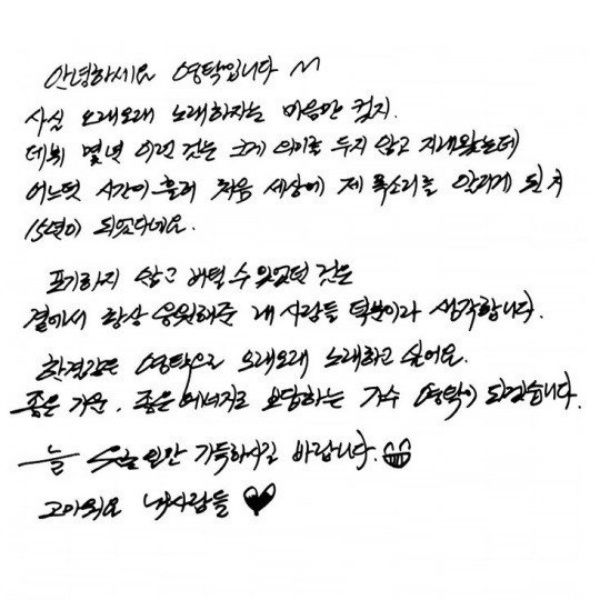 안녕하세요 영탁입니다 ^^
사실 오래오래 노래하자는 마음만 컸지.
데뷔 몇년 이런 것는 크게 의미를 두지 않고 지내왔는데
어느덧 시간이 흘러 처음 세상에 제 목소리를 알리게 된지
15년이 되었다네요.
포기하지 않고 버틸 수 있었던 것은
곁에서 항상 응원해준 내 사람들 덕분이라 생각합니다.
한결같은 영탁으로 오래오래 노래하고 싶어요.
좋은 기운, 좋은 에너지로 보답하는 가수 영탁이 되겠습니다.
늘 웃는 일만 가득하시길 바랍니다.
고마워요 내사람들 ♥